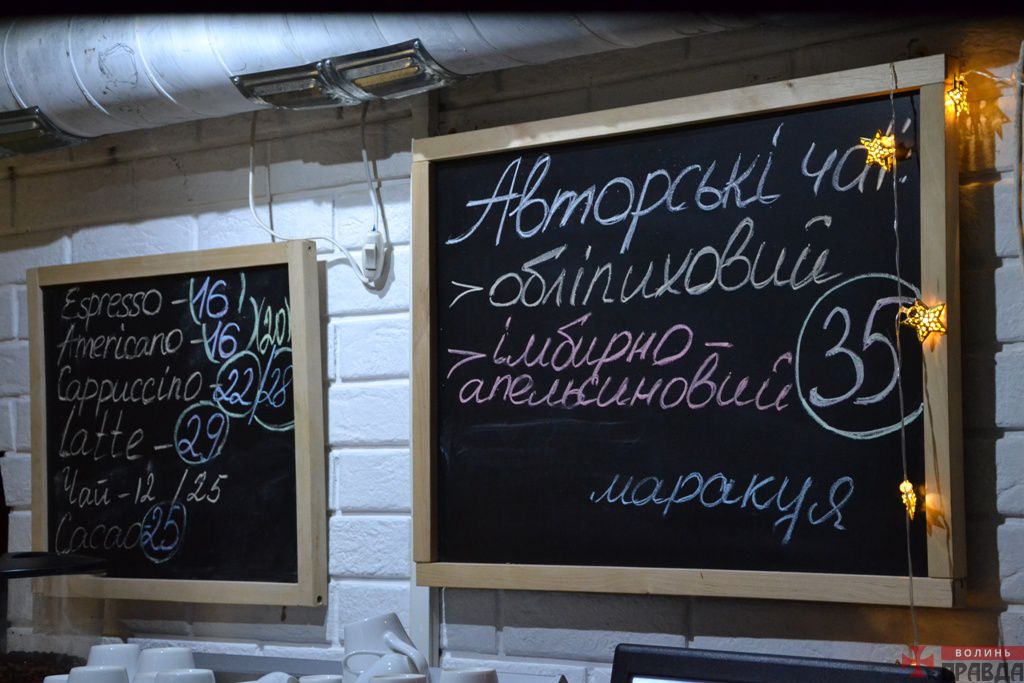 Espresso - 16
Americano - 16 (20)
Cappuccino - 22/28
Latte - 29
Чай - 12 / 25
Cacao 25
Авторські чаї:
> обліпиховий
> імбирно -
апельсиновий
35
маракуя
ВОЛИНЬ
ПРАВДА